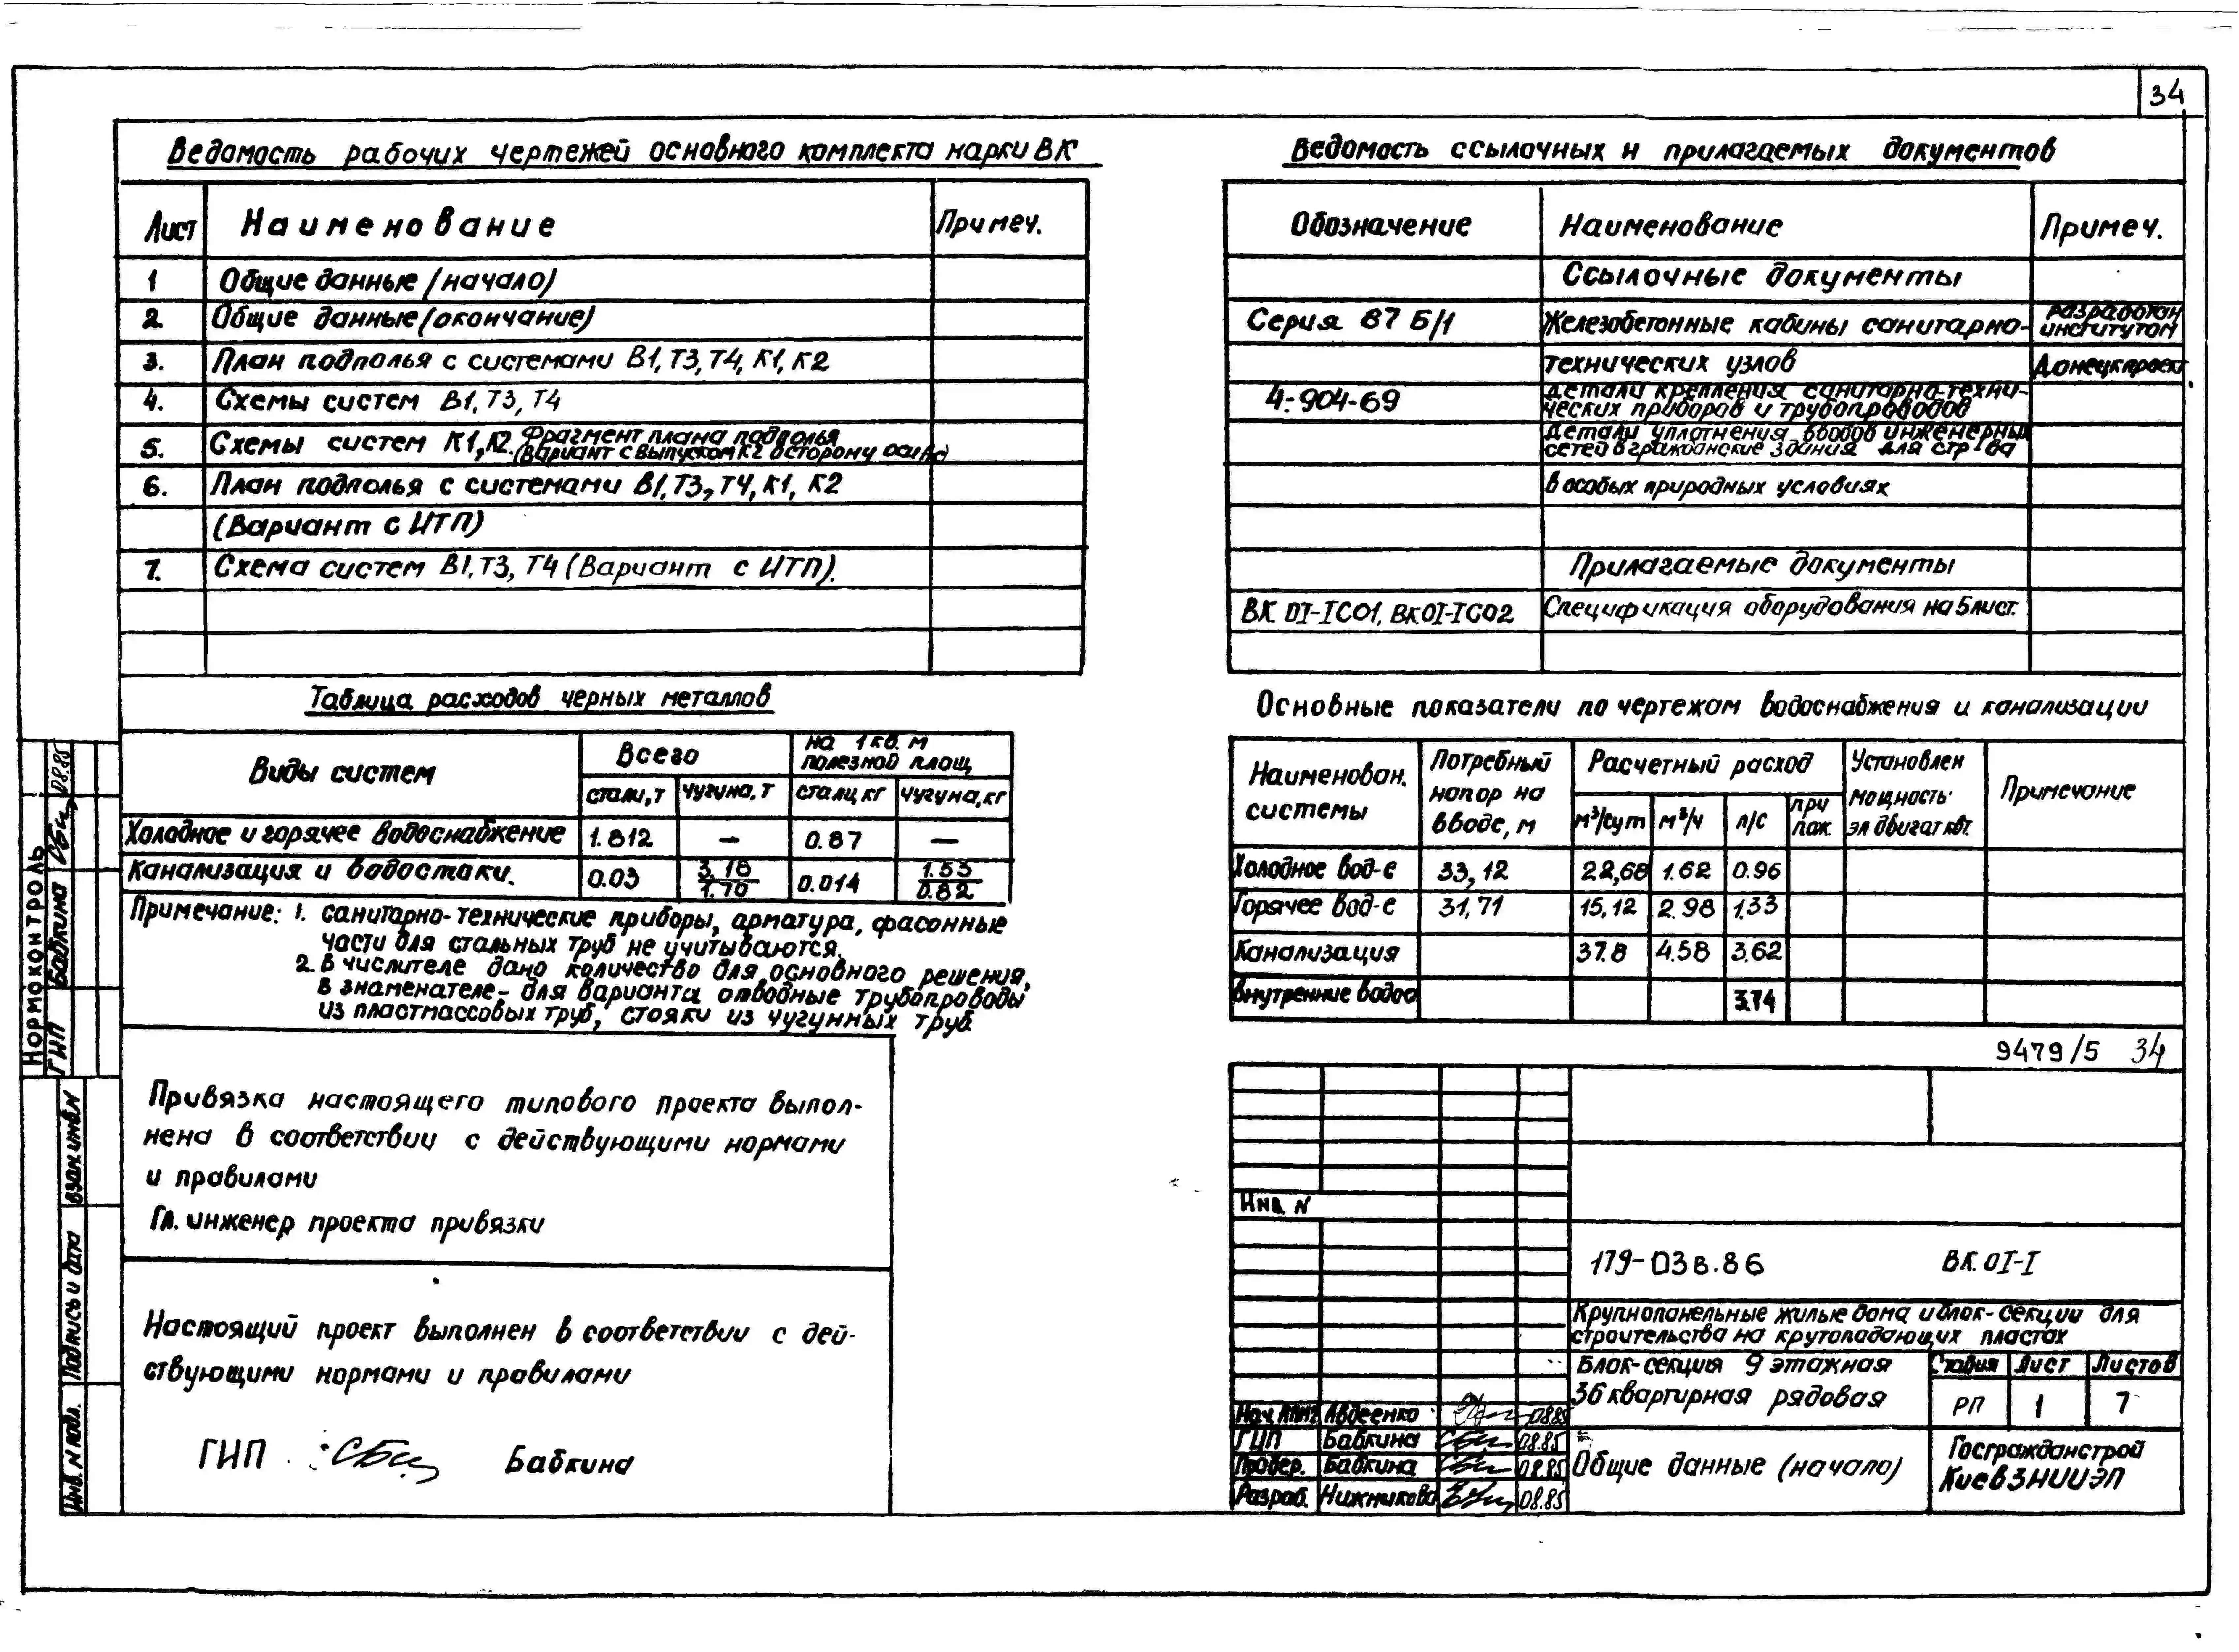 34
Ведомость рабочих чертежей основного комплекта марки ВК
Лист Наименование Примеч.
1 Общие данные (начало)
2 Общие данные (окончание)
3. План подполья с системами В1, Т3, Т4, К1, К2
4. Схемы систем В1, Т3, Т4
5. Схемы систем К1, К2. Фрагмент плана подполья
(Вариант с выпуском К2 в сторону оси Ас)
6. План подполья с системами В1, Т3, Т4, К1, К2
(Вариант с ИТП)
7. Схема систем В1, Т3, Т4 (Вариант с ИТП).
Ведомость ссылочных и прилагаемых документов
Обозначение Наименование Примеч.
Ссылочные документы
Серия 87 Б/1 Железобетонные кабины санитарно- разработан институтом
технических узлов Донецкпроект
4-904-69 Детали крепления санитарно-техни-
ческих приборов и трубопроводов
Детали уплотнения вводов инженерных
сетей в гражданские здания для стр-ва
в особых природных условиях
Прилагаемые документы
ВК 01-1С01, ВК01-1С02 Спецификация оборудования на 5 лист.
Таблица расходов черных металлов
Виды систем Всего на 1 кв. м полезной площ
стали, т чугуна, т стали, кг чугуна, кг
Холодное и горячее водоснабжение 1.812 — 0.87 —
Канализация и водостоки. 0.03 3.18/1.70 0.014 1.53/0.82
Примечание: 1. санитарно-технические приборы, арматура, фасонные
части для стальных труб не учитываются.
2. В числителе дано количество для основного решения,
в знаменателе - для варианта отводные трубопроводы
из пластмассовых труб, стояки из чугунных труб
Основные показатели по чертежам водоснабжения и канализации
Наименован. системы Потребный напор на вводе, м Расчетный расход Установлен мощность эл двигат квт. Примечание
м³/сут м³/ч л/с при пож.
Холодное вод-е 33,12 22,68 1.62 0.96
Горячее вод-е 31,71 15,12 2.98 1,33
Канализация 37.8 4.58 3.62
Внутренние водос 3.74
9479/5 34
Привязка настоящего типового проекта выпол-
нена в соответствии с действующими нормами
и правилами
Гл. инженер проекта привязки
Настоящий проект выполнен в соответствии с дей-
ствующими нормами и правилами
ГИП Бабкина
Нормоконтроль
ГИП Бабкина 08.85
Взам. инв. N
Подпись и дата
Инв. N подл.
Инв. N
179-03в.86 ВК.01-1
Крупнопанельные жилые дома и блок-секции для
строительства на крутопадающих пластах
Блок-секция 9 этажная
36 квартирная рядовая
Стадия Лист Листов
РП 1 7
Нач. Авдеенко 08.85
ГИП Бабкина 08.85
Провер. Бабкина 08.85
Разраб. Нижникова 08.85
Общие данные (начало)
Госгражданстрой
КиевЗНИИЭП